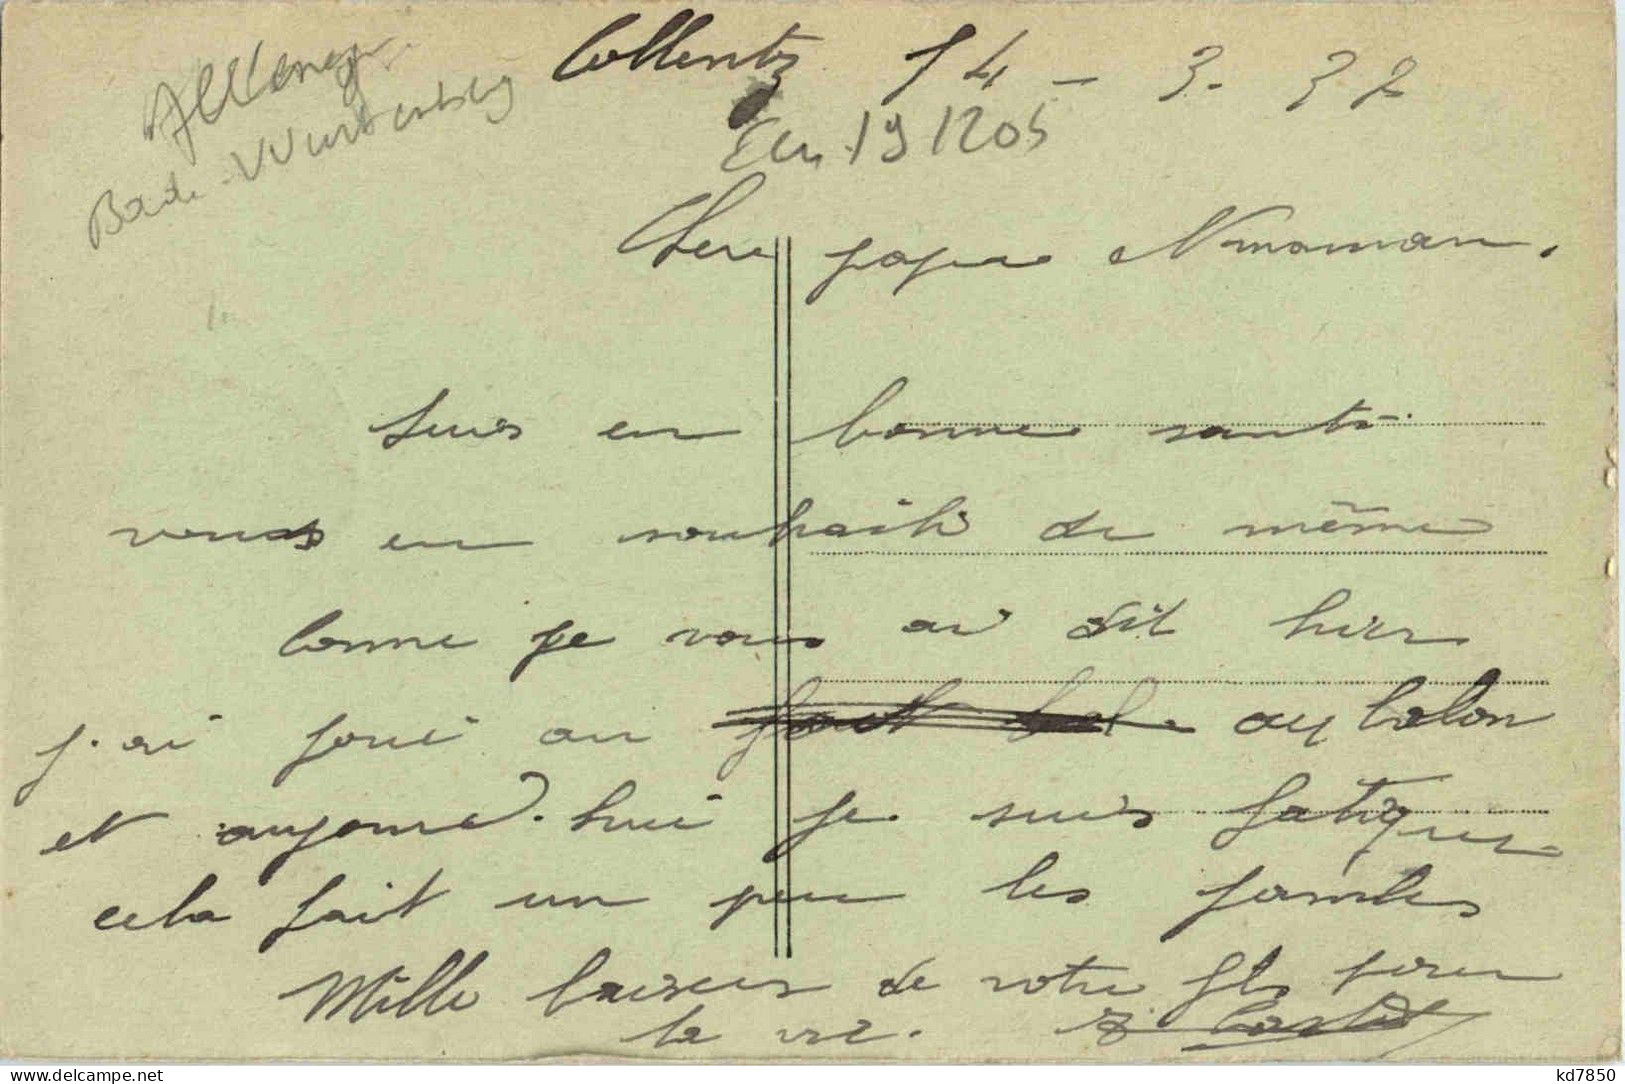 Allemagne
Bade-Wurtemberg
Collentz 14 - 3. 32
19 1205
Cher papa et maman.
Suis en bonne santé
vous en souhaite de même
Comme je vous ai dit hier
j.ai joué au au balon
et aujourd'hui je suis fatigué
cela fait un peu les jambes
Mille baisers de votre fils pour
la vie.
kd7850